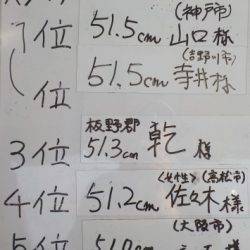 (神戸市)
1位 51.5cm 山口様
(吉野川市)
位 51.5cm 寺井様
板野郡
3位 51.3cm 乾 様
<女性> (高松市)
4位 51.2cm 佐々木様
(大阪市)